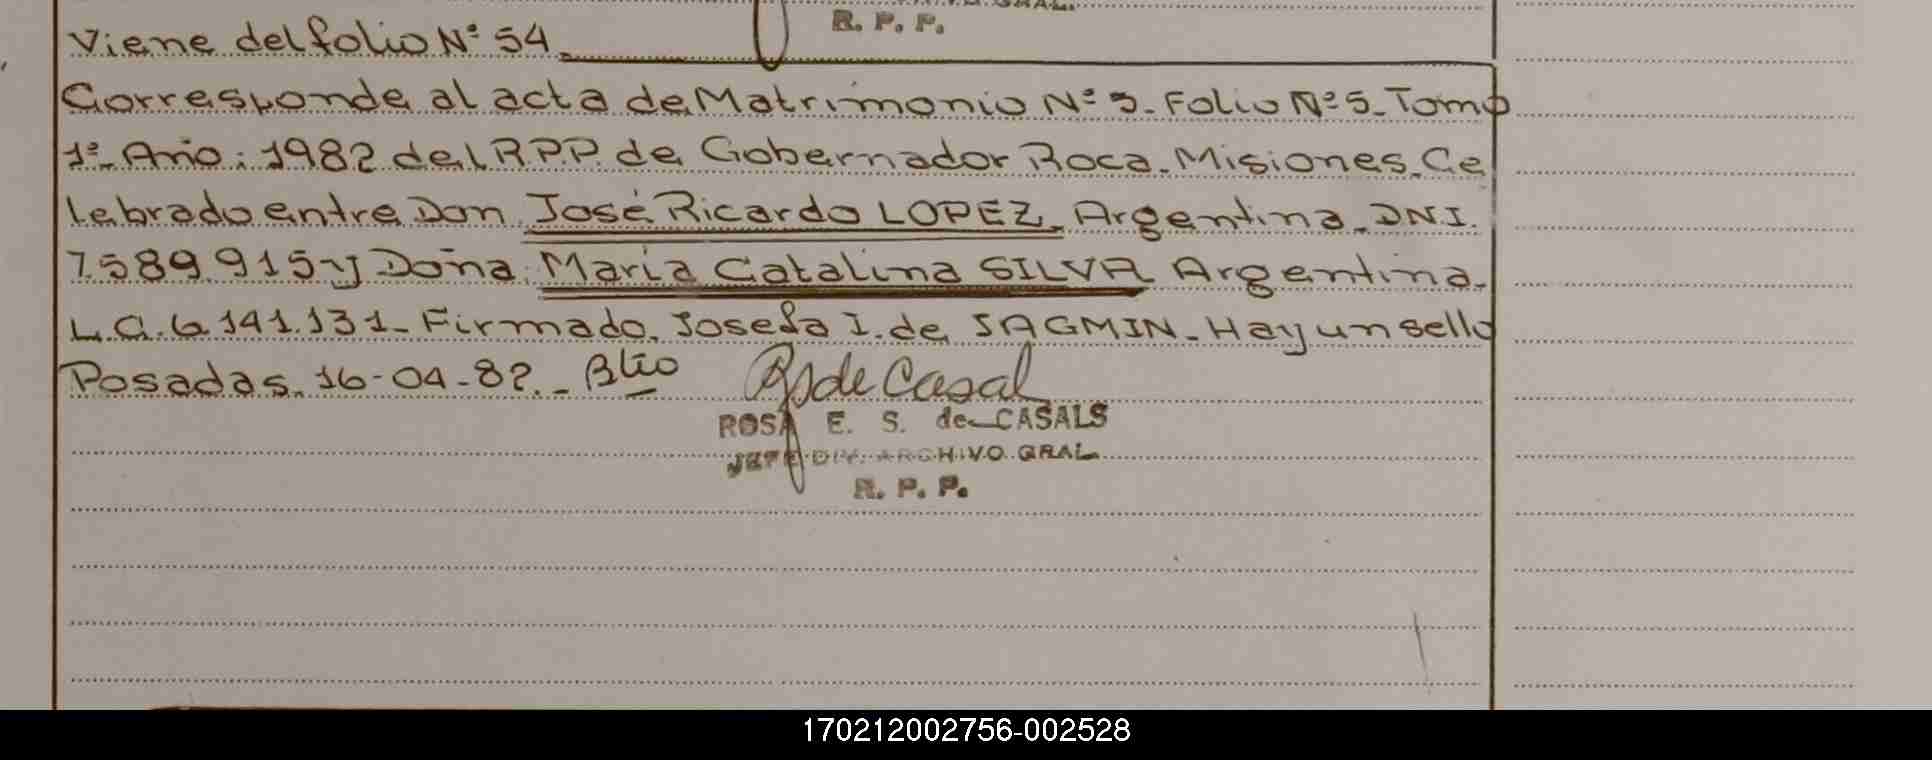 R. P. P.
Viene del folio Nº 54
Corresponde al acta de Matrimonio Nº 5. Folio Nº 5. Tomo
1º. Año: 1982 del R.P.P. de Gobernador Roca. Misiones. Ce
lebrado entre Don José Ricardo LOPEZ. Argentina. D.N.I.
7.589.915 y Doña: María Catalina SILVA Argentina.
L.C. 6.141.131. Firmado. Josefa I. de SAGMIN. Hay un sello
Posadas. 16-04-82.
ROSA E. S. de CASALS
JEFE DIV. ARCHIVO GRAL
R. P. P.
170212002756-002528